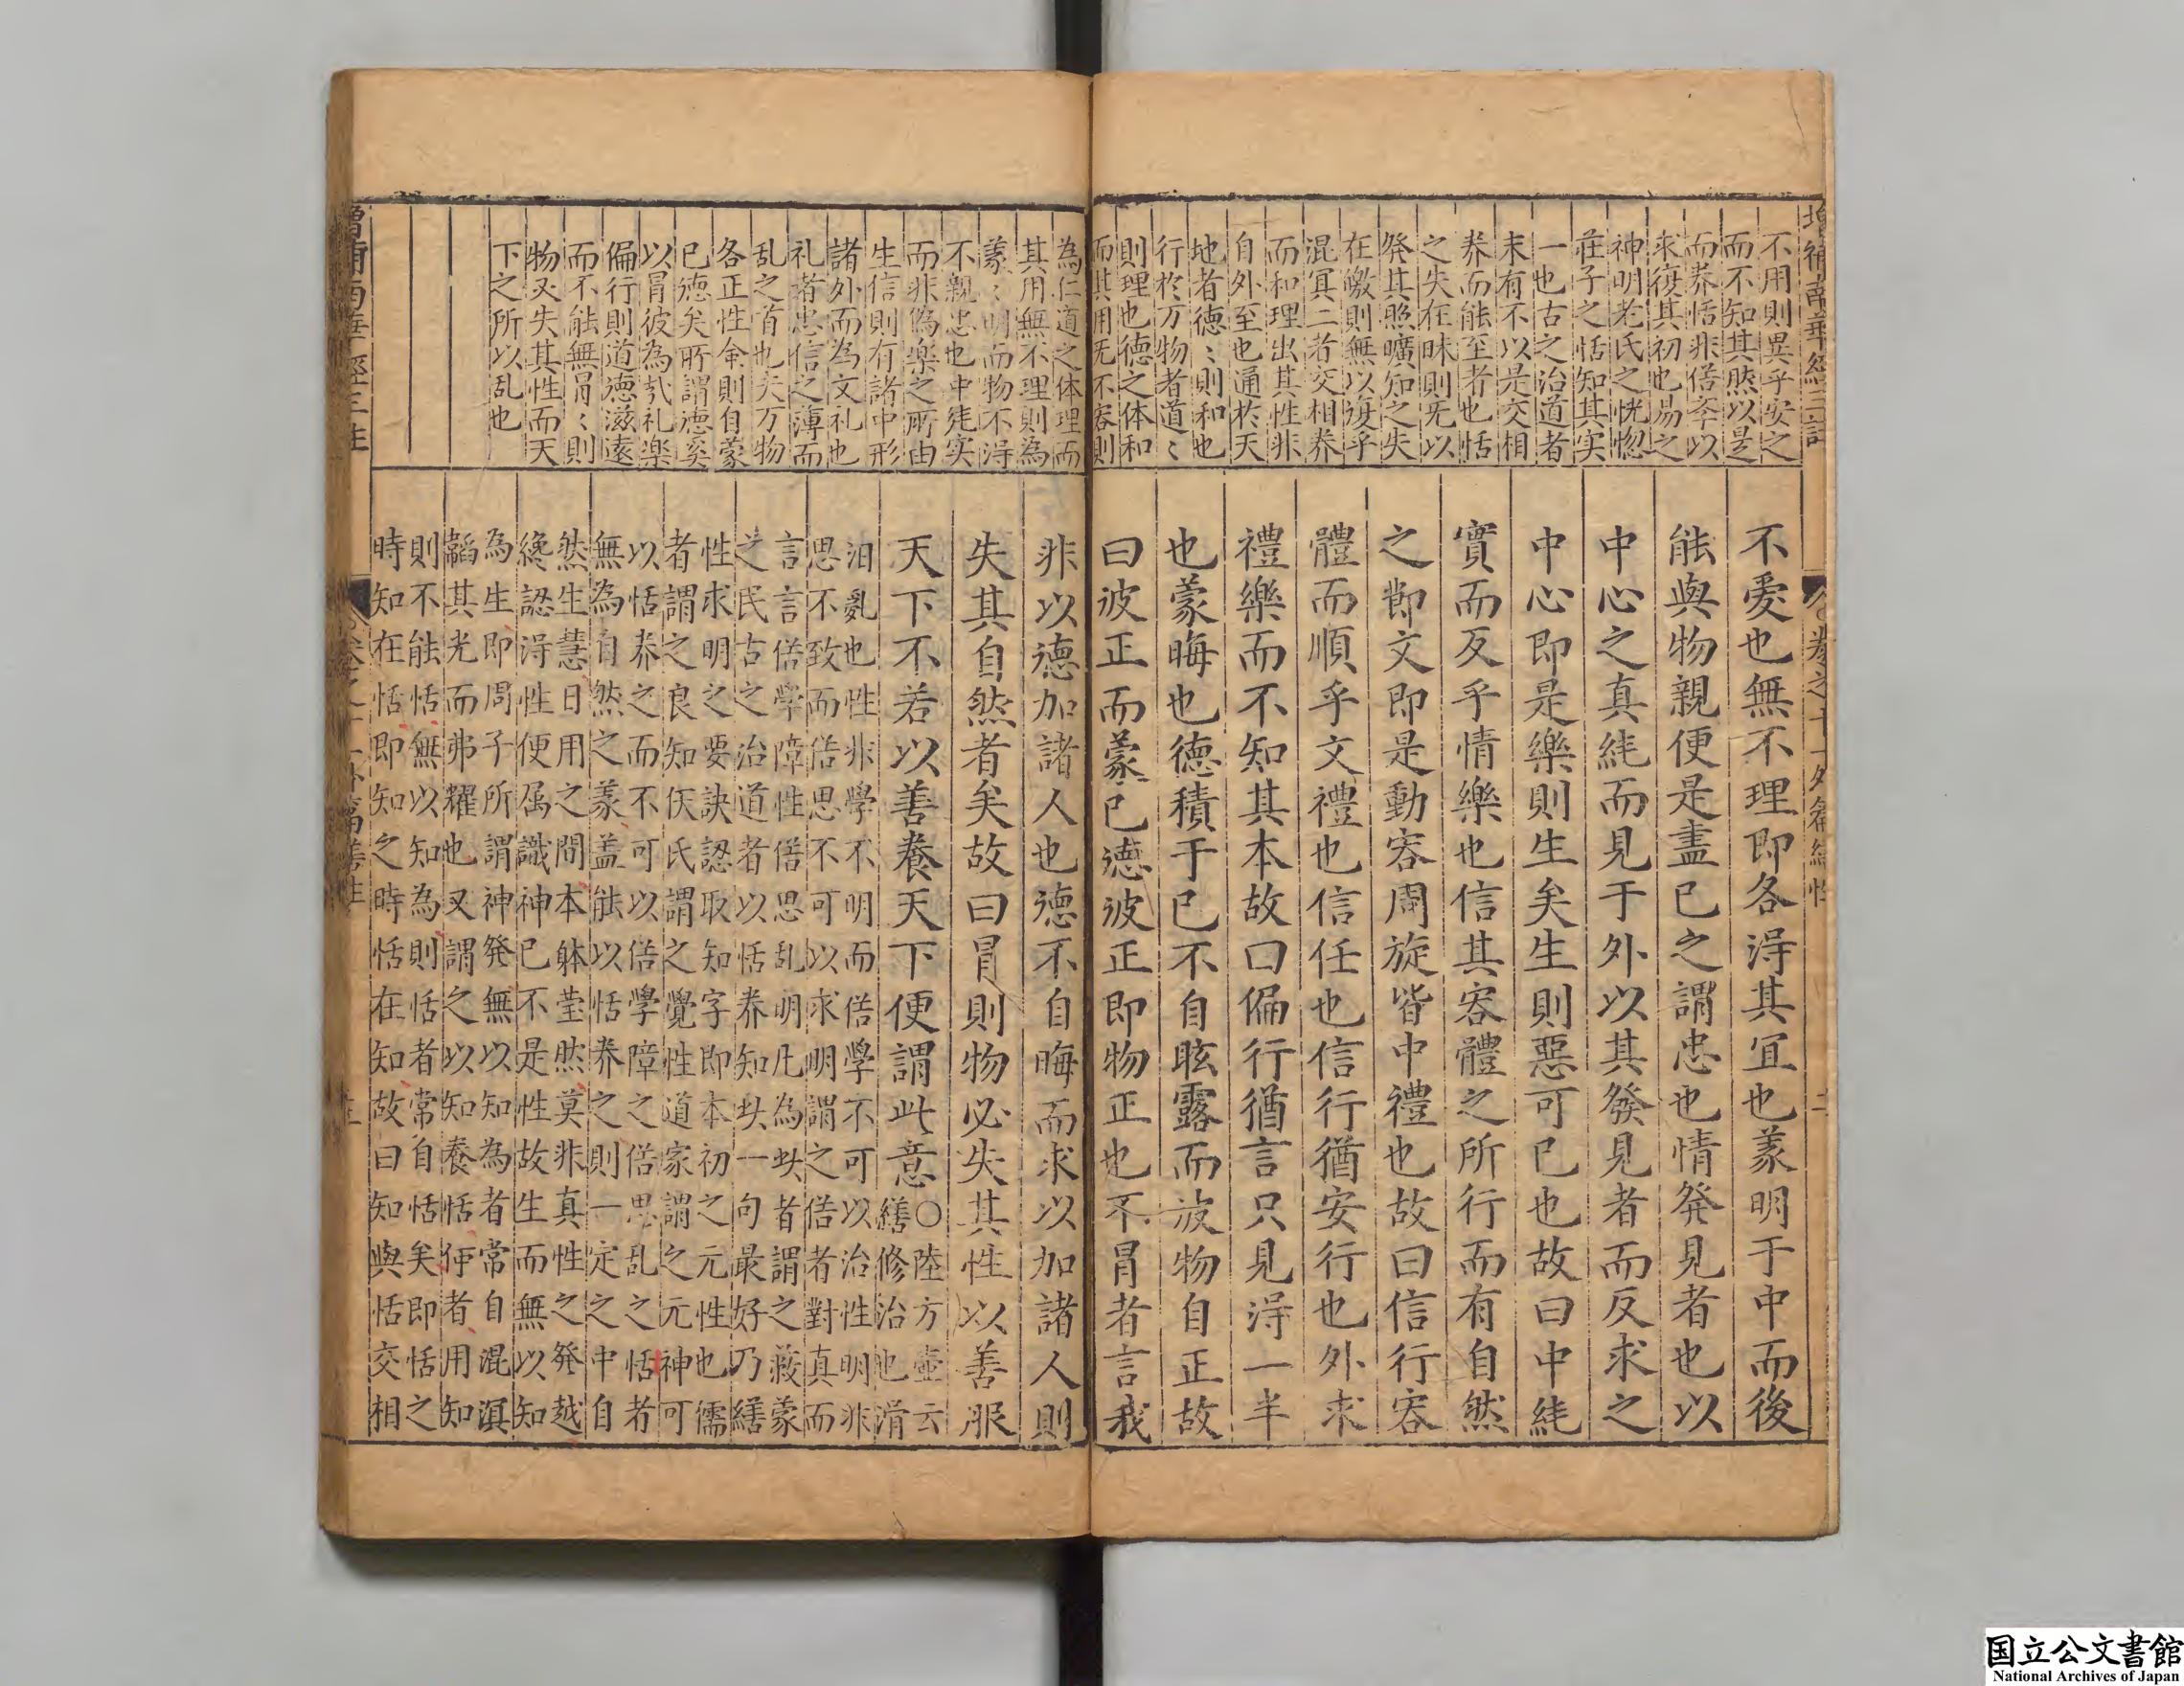 增補南華經三註
不用則異乎安之
而不知其䏻以是
而养恬非偣夲以
求復其初也易之
神明老氏之恍惚
莊子之恬知其实
一也古之治道者
末有不以是交相
养而能至者也恬
之失在昧則旡以
発其照曠知之失
在皦則無以復乎
混冥二者交相养
而和理出其性非
自外至也通於天
地者徳〻則和也
行於万物者道〻
則理也德之体和
而其用旡不容則
為仁道之体理而
其用無不理則為
義〻明而物不淂
不親忠也中㐬实
而非偽楽之所由
生信則有諸中形
諸外而為文礼也
礼者忠信之薄而
乱之首也夫万物
各正性命則自蒙
已德矣所謂德奚
以冒彼為㢤礼楽
偏行則道徳滋遠
而不能無冒〻則
物又失其性而天
下之所以乱也
不愛也無不理即各淂其宜也義明于中而後
能與物親便是盡已之謂忠也情発見者也以
中心之真純而見于外以其發見者而反求之
中心即是樂則生矣生則惡可已也故曰中純
實而反乎情樂也信其容體之所行而有自然
之節文即是動容周旋皆中禮也故曰信行容
體而順乎文禮也信任也信行猶安行也外求
禮樂而不知其本故曰偏行猶言只見淂一半
也蒙晦也德積于已不自眩露而彼物自正故
曰彼正而蒙已德彼正即物正也不冒者言我
非以德加諸人也德不自晦而求以加諸人則
失其自然者矣故曰冒則物必失其性以善服
天下不若以善養天下便謂此意○陸方壺云
繕修治也滑
汨亂也性非學不明而偣學不可以治性明非
思不致而偣思不可以求明謂之偣者對真而
言言偣學障性偣思乱明凢為此者謂之蔽蒙
之民古之治道者以恬养知此一句最好乃繕
性求明之要訣認取知字即本初之元性也儒
者謂之良知仸氏謂之覺性道家謂之元神可
以恬养之而不可以偣學障之偣思乱之恬者
無為自然之義盖能以恬养之則一定之中自
然生慧日用之間本躰莹然莫非真性之発越
纔認淂性便属識神已不是性故生而無以知
為生即周子所謂神発無以知為者常自混溟
韜其光而弗耀也又謂之以知養恬俉者用知
則不能恬無以知為則恬者常自恬矣即恬之
時知在恬即知之時恬在知故曰知與恬交相
国立公文書館
National Archives of Japan